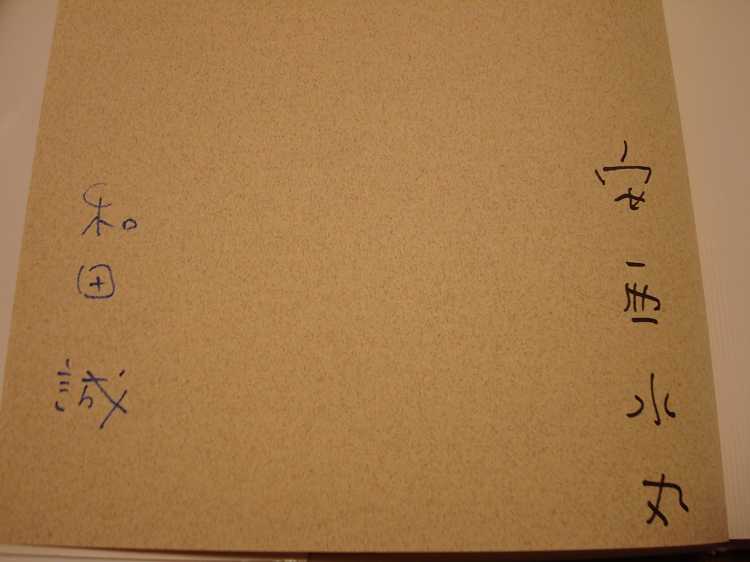 安西水丸
和田誠